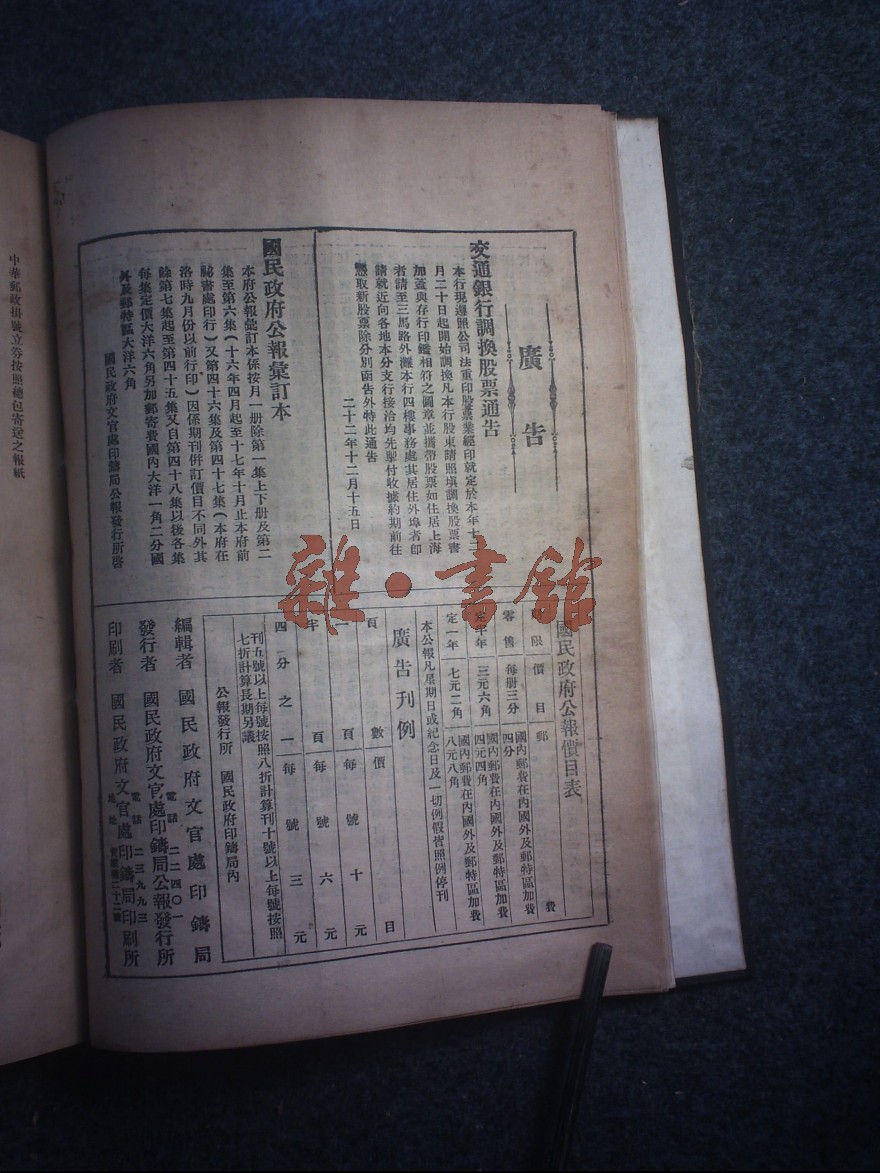 廣告
交通銀行調換股票通告
本行現遵照公司法重印股票業經印就定於本年十二
月二十日起開始調換凡本行股東請照填調換股票書
加蓋與存行印鑑相符之圖章並攜帶股票如住居上海
者請至三馬路外灘本行四樓事務處其居住外埠者卽
請就近向各地本分支行接洽均先掣付收據約期前往
憑取新股票除分別函告外特此通告
二十二年十二月十五日
國民政府公報彙訂本
本府公報彙訂本係按月一册除第一集上下册及第二
集至第六集(十六年四月起至十七年十月止本府前
秘書處印行)又第四十六集及第四十七集(本府在
洛時九月份以前行印)因係期刊併訂價目不同外其
餘第七集起至第四十五集又自第四十八集以後各集
每集定價大洋六角另加郵寄費國內大洋一角二分國
外及郵特區大洋六角
國民政府文官處印鑄局公報發行所啓
國民政府公報價目表
限 價 目 郵 費
零售 每册三分 國內郵費在內國外及郵特區加費四分
定半年 三元六角 國內郵費在內國外及郵特區加費四元四角
定一年 七元二角 國內郵費在內國外及郵特區加費八元八角
本公報凡星期日或紀念日及一切例假皆照例停刊
廣告刊例
頁 數 價 目
一 頁 每 號 十 元
半 頁 每 號 六 元
四 分 之 一 每 號 三 元
刊五號以上每號按照八折計算刊十號以上每號按照
七折計算長期另議
公報發行所 國民政府印鑄局內
編輯者 國民政府文官處印鑄局
電話 二二四〇一
發行者 國民政府文官處印鑄局公報發行所
電話 二三九九三
印刷者 國民政府文官處印鑄局印刷所
中華郵政掛號立券按照總包寄送之報紙
雜·書館